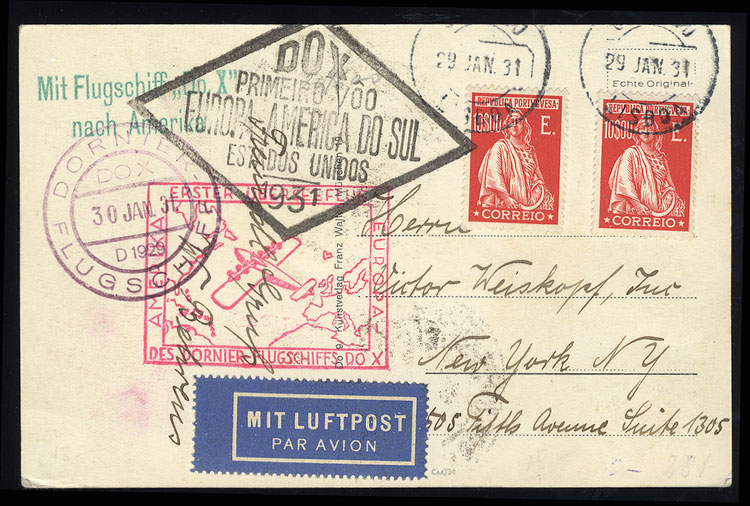 Mit Flugschiff „Do. X"
nach Amerika
DOX
PRIMEIRO VOO
EUROPA AMERICA DO SUL
ESTADOS UNIDOS
1931
29 JAN. 31
29 JAN. 31
Echte Original-
REPUBLICA PORTUGUESA
10$00 E.
CORREIO
REPUBLICA PORTUGUESA
10$00 E.
CORREIO
DORNIER-
DOX
30 JAN. 31
D 1929
FLUGSCHIFF
ERSTER
EUROPA-
AMERIKA
DES DORNIER-FLUGSCHIFFS DO X
Kunstverlag Franz
München 19
Herrn
Victor Weiskopf, Inc
New York NY
505 Fifth Avenue Suite 1305
MIT LUFTPOST
PAR AVION
281